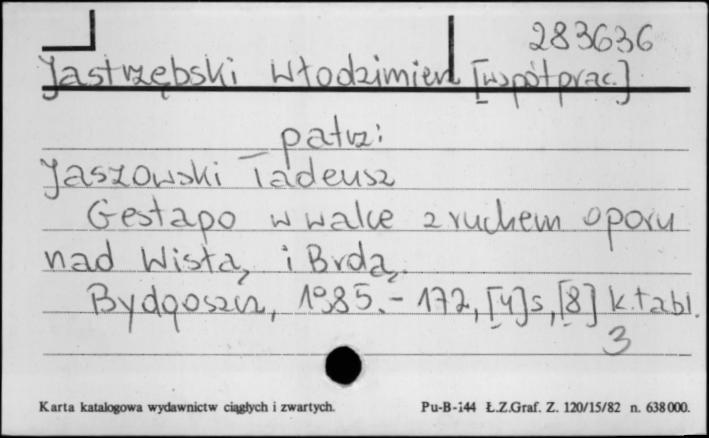 283636
Jastrzębski Włodzimierz [współprac.]
patrz:
Jaszowski Tadeusz
Gestapo w walce z ruchem oporu
nad Wisłą i Brdą.
Bydgoszcz, 1985. - 172, [4] s, [8] k. tabl.
3
Karta katalogowa wydawnictw ciągłych i zwartych.
Pu-B-144 Ł.Z.Graf. Z. 120/15/82 n. 638 000.